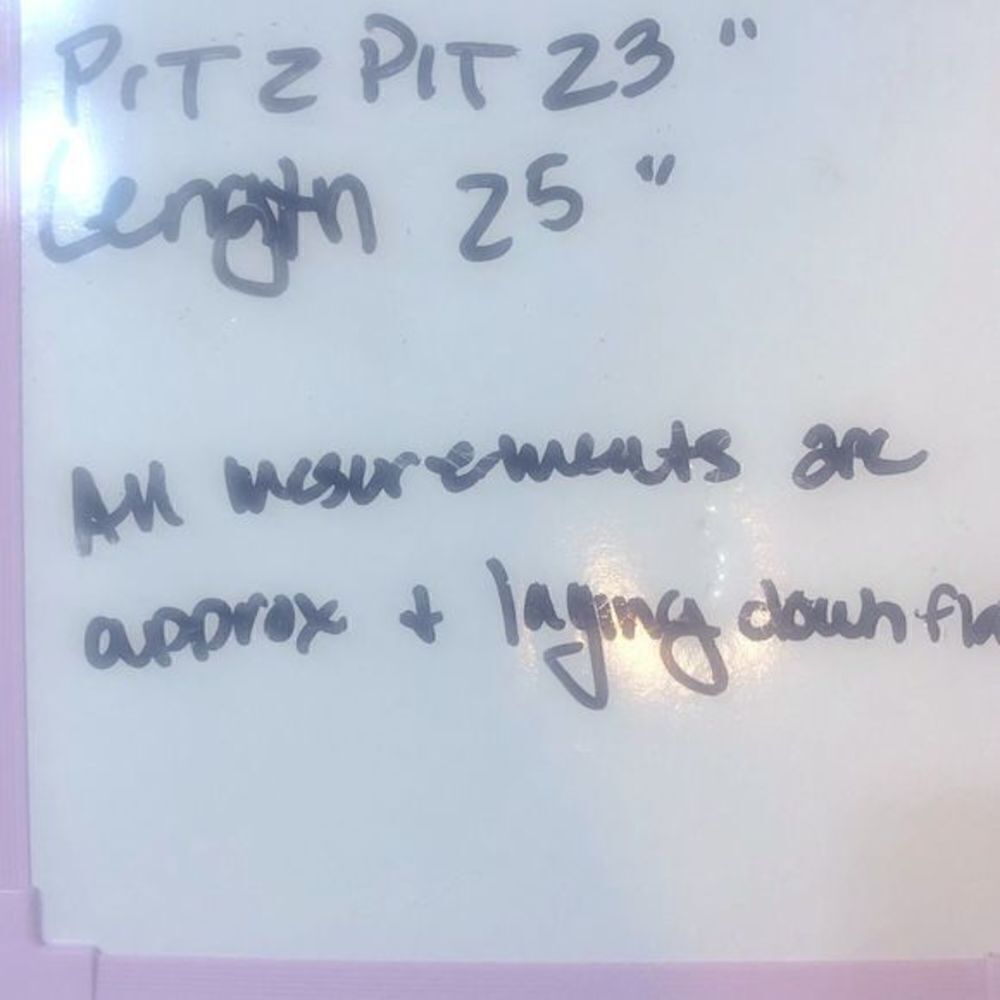 PIT 2 PIT 23 "
Length 25 "
All mesurements are
approx + laying down fla